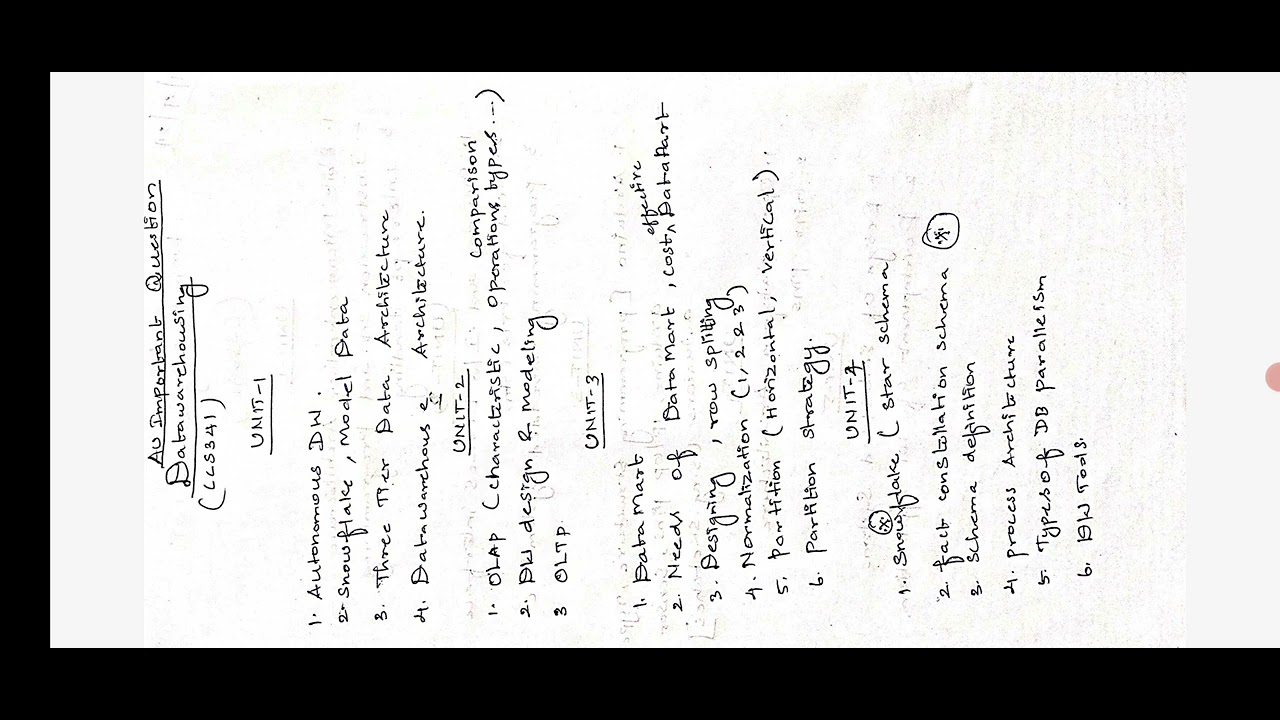 AU Important Question
Datawarehousing
(CCS341)
UNIT-1
1. Autonomous DW.
2. Snowflake, Model Data
3. Three Tier Data Architecture
4. Datawarehouse Architecture.
UNIT-2
1. OLAP (characteristic, operations types...) comparison
2. DW design & modeling
3 OLTP
UNIT-3
1. Data Mart
2. Needs of Data Mart, cost effective DataMart
3. Designing, row splitting
4. Normalization (1, 2 2 3)
5. partition (Horizontal, vertical)..
6. Partition strategy.
UNIT-4
1. Snowflake ( star schema
2. fact constellation schema
3. Schema definition
4. process Architecture
5. Types of DB paralleism
6. DW Tools.